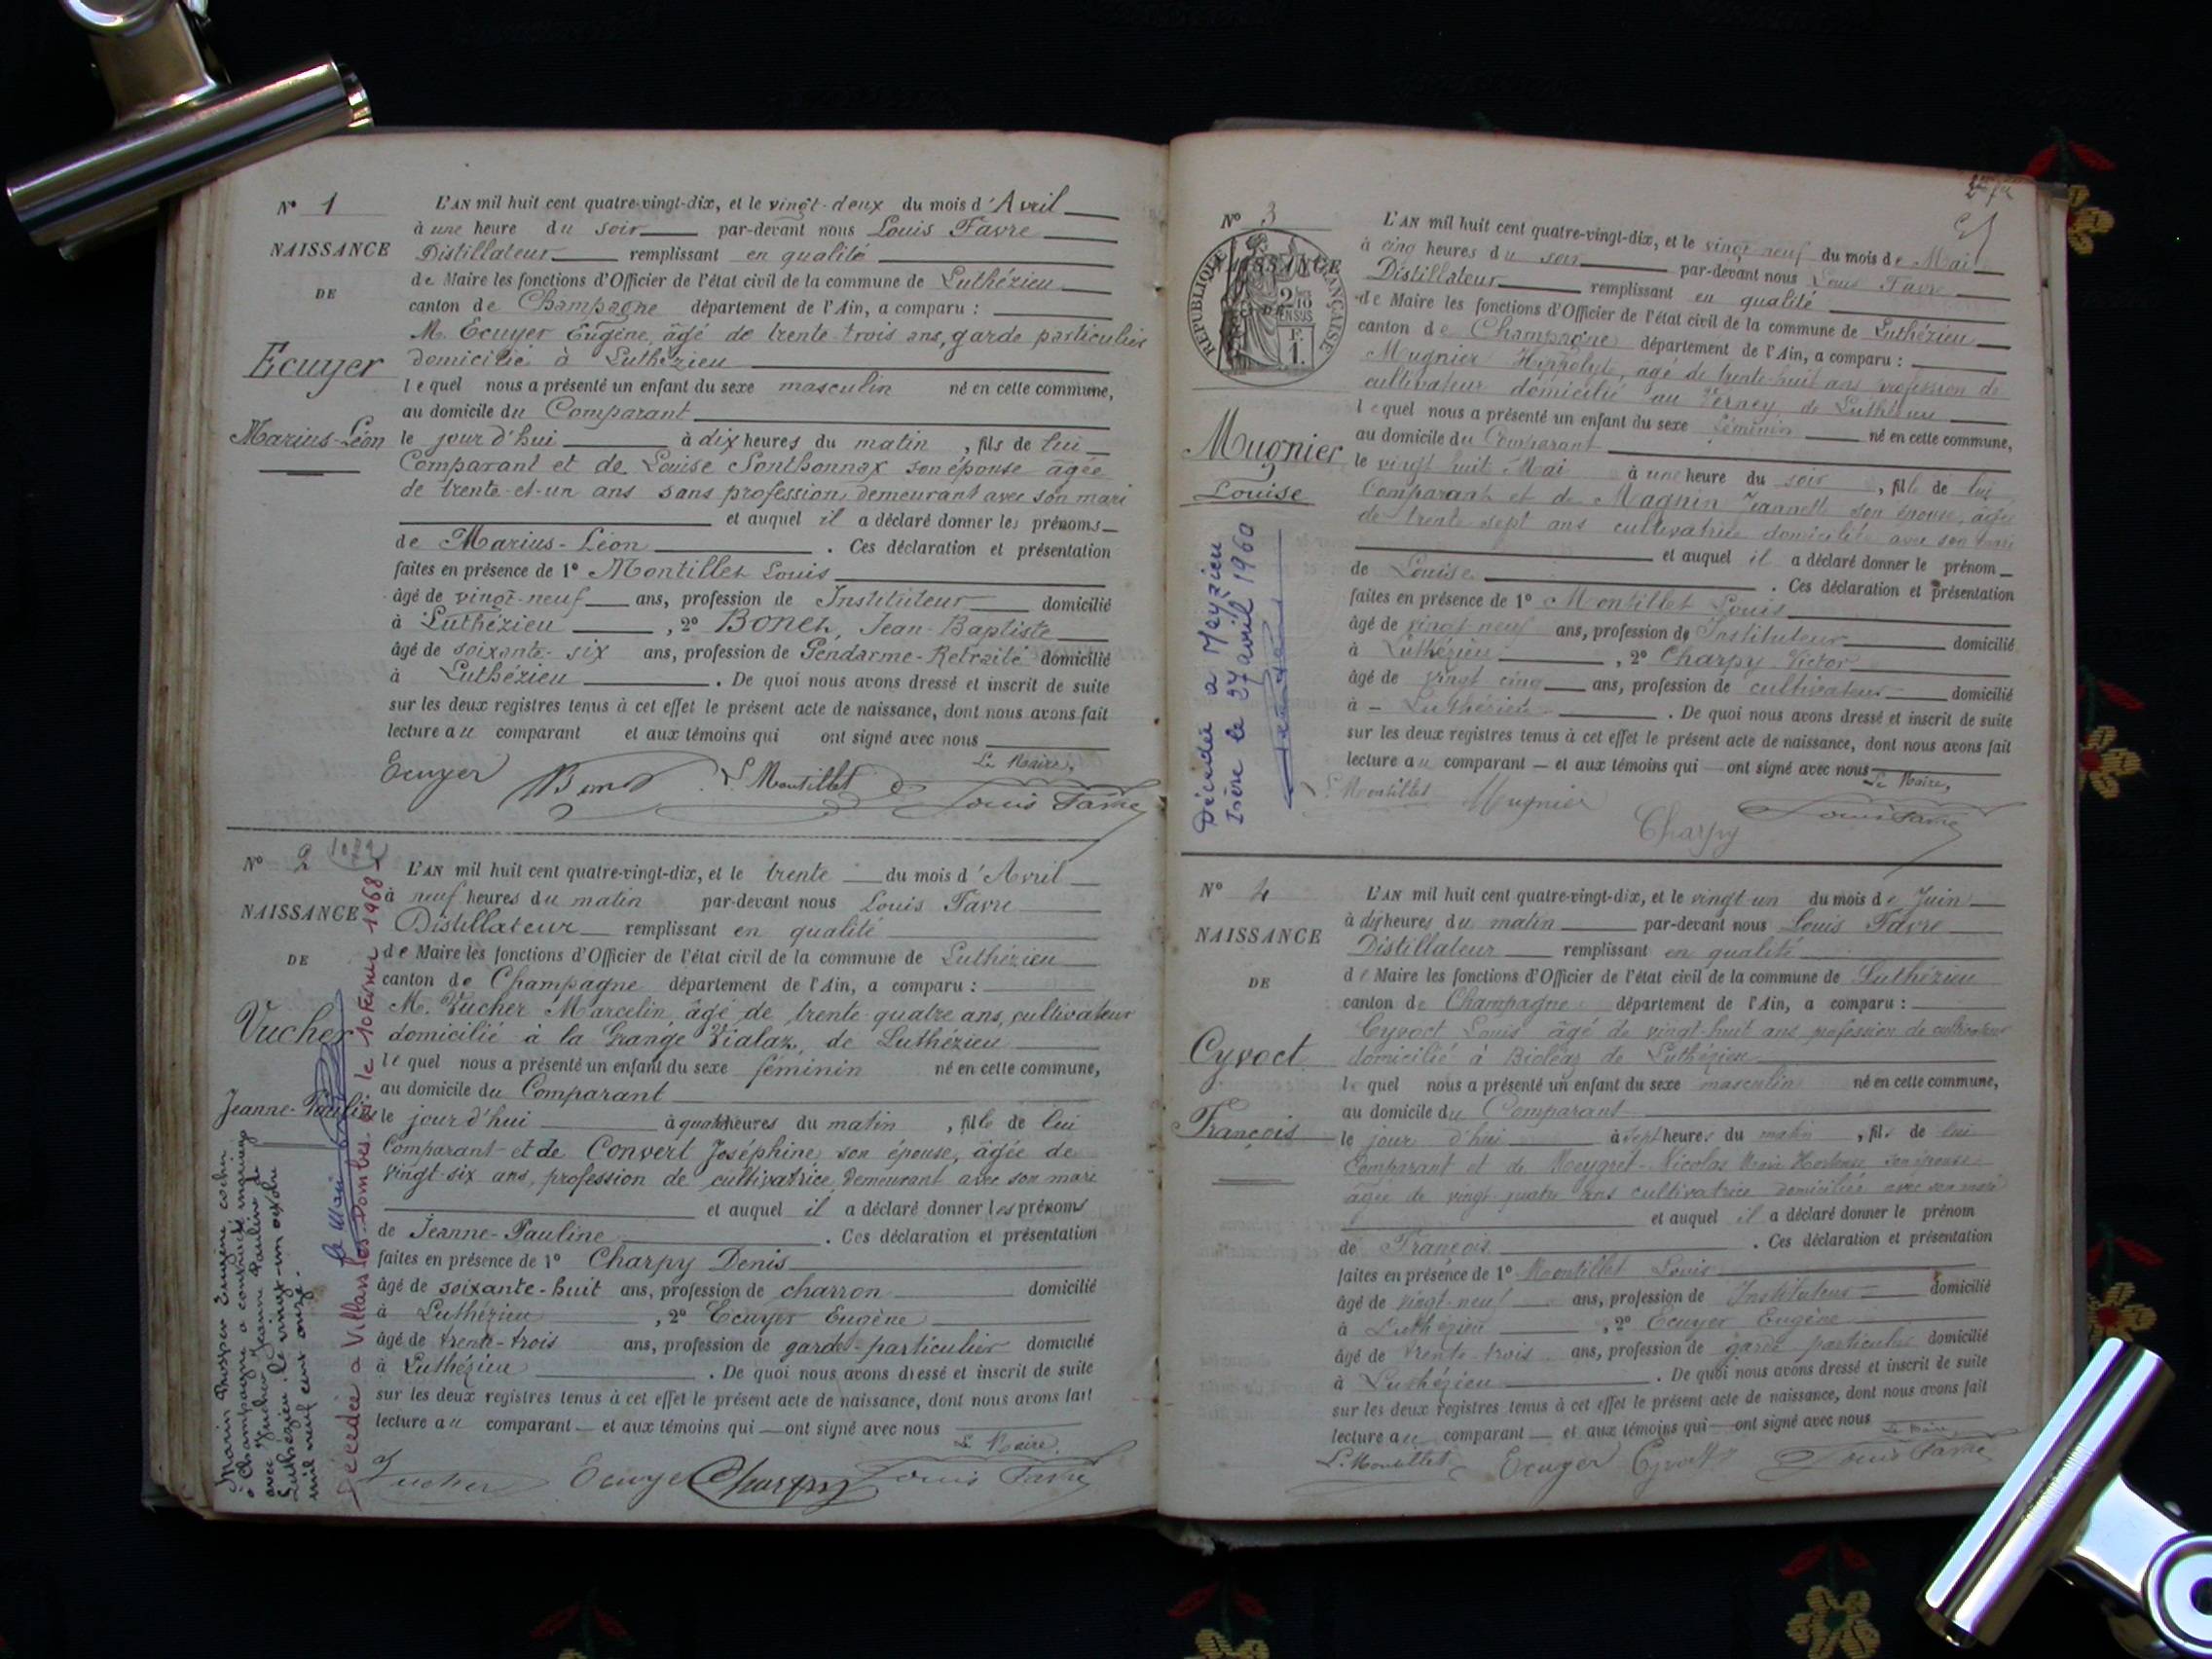 N° 1
NAISSANCE
DE
Ecuyer
Marius-Léon
L'AN mil huit cent quatre-vingt-dix, et le vingt-deux du mois d'Avril
à une heure du soir par-devant nous Louis Favre
Distillateur remplissant en qualité
de Maire les fonctions d'Officier de l'état civil de la commune de Luthézieu
canton de Champagne département de l'Ain, a comparu :
M. Ecuyer Eugène, âgé de trente trois ans, garde particulier
domicilié à Luthézieu
lequel nous a présenté un enfant du sexe masculin né en cette commune,
au domicile du Comparant
le jour d'hui à dix heures du matin, fils de lui
Comparant et de Louise Sonthonnax son épouse âgée
de trente-et-un ans sans profession, demeurant avec son mari
et auquel il a déclaré donner les prénoms
de Marius-Léon. Ces déclaration et présentation
faites en présence de 1° Montillet Louis
âgé de vingt-neuf ans, profession de Instituteur domicilié
à Luthézieu, 2° Bonet, Jean-Baptiste
âgé de soixante-six ans, profession de Gendarme-Retraité domicilié
à Luthézieu. De quoi nous avons dressé et inscrit de suite
sur les deux registres tenus à cet effet le présent acte de naissance, dont nous avons fait
lecture au comparant et aux témoins qui ont signé avec nous
Le Maire,
Ecuyer L. Montillet Louis Favre
N° 2
NAISSANCE
DE
Vucher
Jeanne-Pauline
L'AN mil huit cent quatre-vingt-dix, et le trente du mois d'Avril
à neuf heures du matin par-devant nous Louis Favre
Distillateur remplissant en qualité
de Maire les fonctions d'Officier de l'état civil de la commune de Luthézieu
canton de Champagne département de l'Ain, a comparu :
M. Vucher Marcelin âgé de trente quatre ans, cultivateur
domicilié à la Grange Vialaz, de Luthézieu
lequel nous a présenté un enfant du sexe féminin né en cette commune,
au domicile du Comparant
le jour d'hui à quatre heures du matin, fille de lui
Comparant et de Convert Joséphine son épouse, âgée de
vingt-six ans, profession de cultivatrice, demeurant avec son mari
et auquel il a déclaré donner les prénoms
de Jeanne-Pauline. Ces déclaration et présentation
faites en présence de 1° Charpy Denis
âgé de soixante-huit ans, profession de charron domicilié
à Luthézieu, 2° Ecuyer Eugène
âgé de trente-trois ans, profession de garde-particulier domicilié
à Luthézieu. De quoi nous avons dressé et inscrit de suite
sur les deux registres tenus à cet effet le présent acte de naissance, dont nous avons fait
lecture au comparant et aux témoins qui ont signé avec nous
Le Maire,
Vucher Ecuyer Charpy Louis Favre
Marin Prosper Eugène
à Champagne a contracté mariage
avec Vucher Jeanne Pauline à
Luthézieu, le vingt-un octobre
mil neuf cent onze.
Le Maire
Décédée à Villars les Dombes le 10 Février 1968
N° 3
NAISSANCE
RÉPUBLIQUE FRANÇAISE
Mugnier
Louise
Décédée à Meyzieu
Isère le 27 avril 1960
L'AN mil huit cent quatre-vingt-dix, et le vingt neuf du mois de Mai
à cinq heures du soir par-devant nous Louis Favre
Distillateur remplissant en qualité
de Maire les fonctions d'Officier de l'état civil de la commune de Luthézieu
canton de Champagne département de l'Ain, a comparu :
Mugnier Hippolyte, âgé de trente-huit ans profession de
cultivateur domicilié au Verney, de Luthézieu
lequel nous a présenté un enfant du sexe féminin né en cette commune,
au domicile du Comparant
le vingt huit Mai à une heure du soir, fille de lui
Comparant et de Magnin Jeannette son épouse, âgée
de trente sept ans cultivatrice domiciliée avec son mari
et auquel il a déclaré donner le prénom
de Louise. Ces déclaration et présentation
faites en présence de 1° Montillet Louis
âgé de vingt neuf ans, profession de Instituteur domicilié
à Luthézieu, 2° Charpy Victor
âgé de vingt cinq ans, profession de cultivateur domicilié
à Luthézieu. De quoi nous avons dressé et inscrit de suite
sur les deux registres tenus à cet effet le présent acte de naissance, dont nous avons fait
lecture au comparant et aux témoins qui ont signé avec nous
Le Maire,
L. Montillet Mugnier Charpy Louis Favre
N° 4
NAISSANCE
DE
Cyvoct
François
L'AN mil huit cent quatre-vingt-dix, et le vingt un du mois de Juin
à dix heures du matin par-devant nous Louis Favre
Distillateur remplissant en qualité
de Maire les fonctions d'Officier de l'état civil de la commune de Luthézieu
canton de Champagne département de l'Ain, a comparu :
Cyvoct Louis âgé de vingt-huit ans, profession de cultivateur
domicilié à Bioléaz de Luthézieu
lequel nous a présenté un enfant du sexe masculin né en cette commune,
au domicile du Comparant
le jour d'hui à sept heures du matin, fils de lui
Comparant et de Meygret-Nicolas Marie Hortense, son épouse
âgée de vingt-quatre ans cultivatrice domiciliée avec son mari
et auquel il a déclaré donner le prénom
de François. Ces déclaration et présentation
faites en présence de 1° Montillet Louis
âgé de vingt-neuf ans, profession de Instituteur domicilié
à Luthézieu, 2° Ecuyer Eugène
âgé de trente-trois ans, profession de garde particulier domicilié
à Luthézieu. De quoi nous avons dressé et inscrit de suite
sur les deux registres tenus à cet effet le présent acte de naissance, dont nous avons fait
lecture au comparant et aux témoins qui ont signé avec nous
Le Maire,
L. Montillet Ecuyer Cyvoct Louis Favre